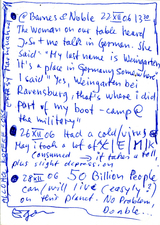 @ Barnes & Noble 22 XII 06 13:00
The woman on our table heard
J+S + me talk in German. She
said: "My last name is Weingarten.
It's a place in Germany somewhere."
I said "Yes, Weingarten bei
Ravensburg, that's where i did
part of my boot-camp @
the military"
• 26 XII 06 Had a cold/virus &
May i took a lot of
Consumed → it takes a toll,
plus slight depression.
• 28 XII 06 50 Billion People
can/will live (easyly?)
on this planet. No Problem,
Doable...